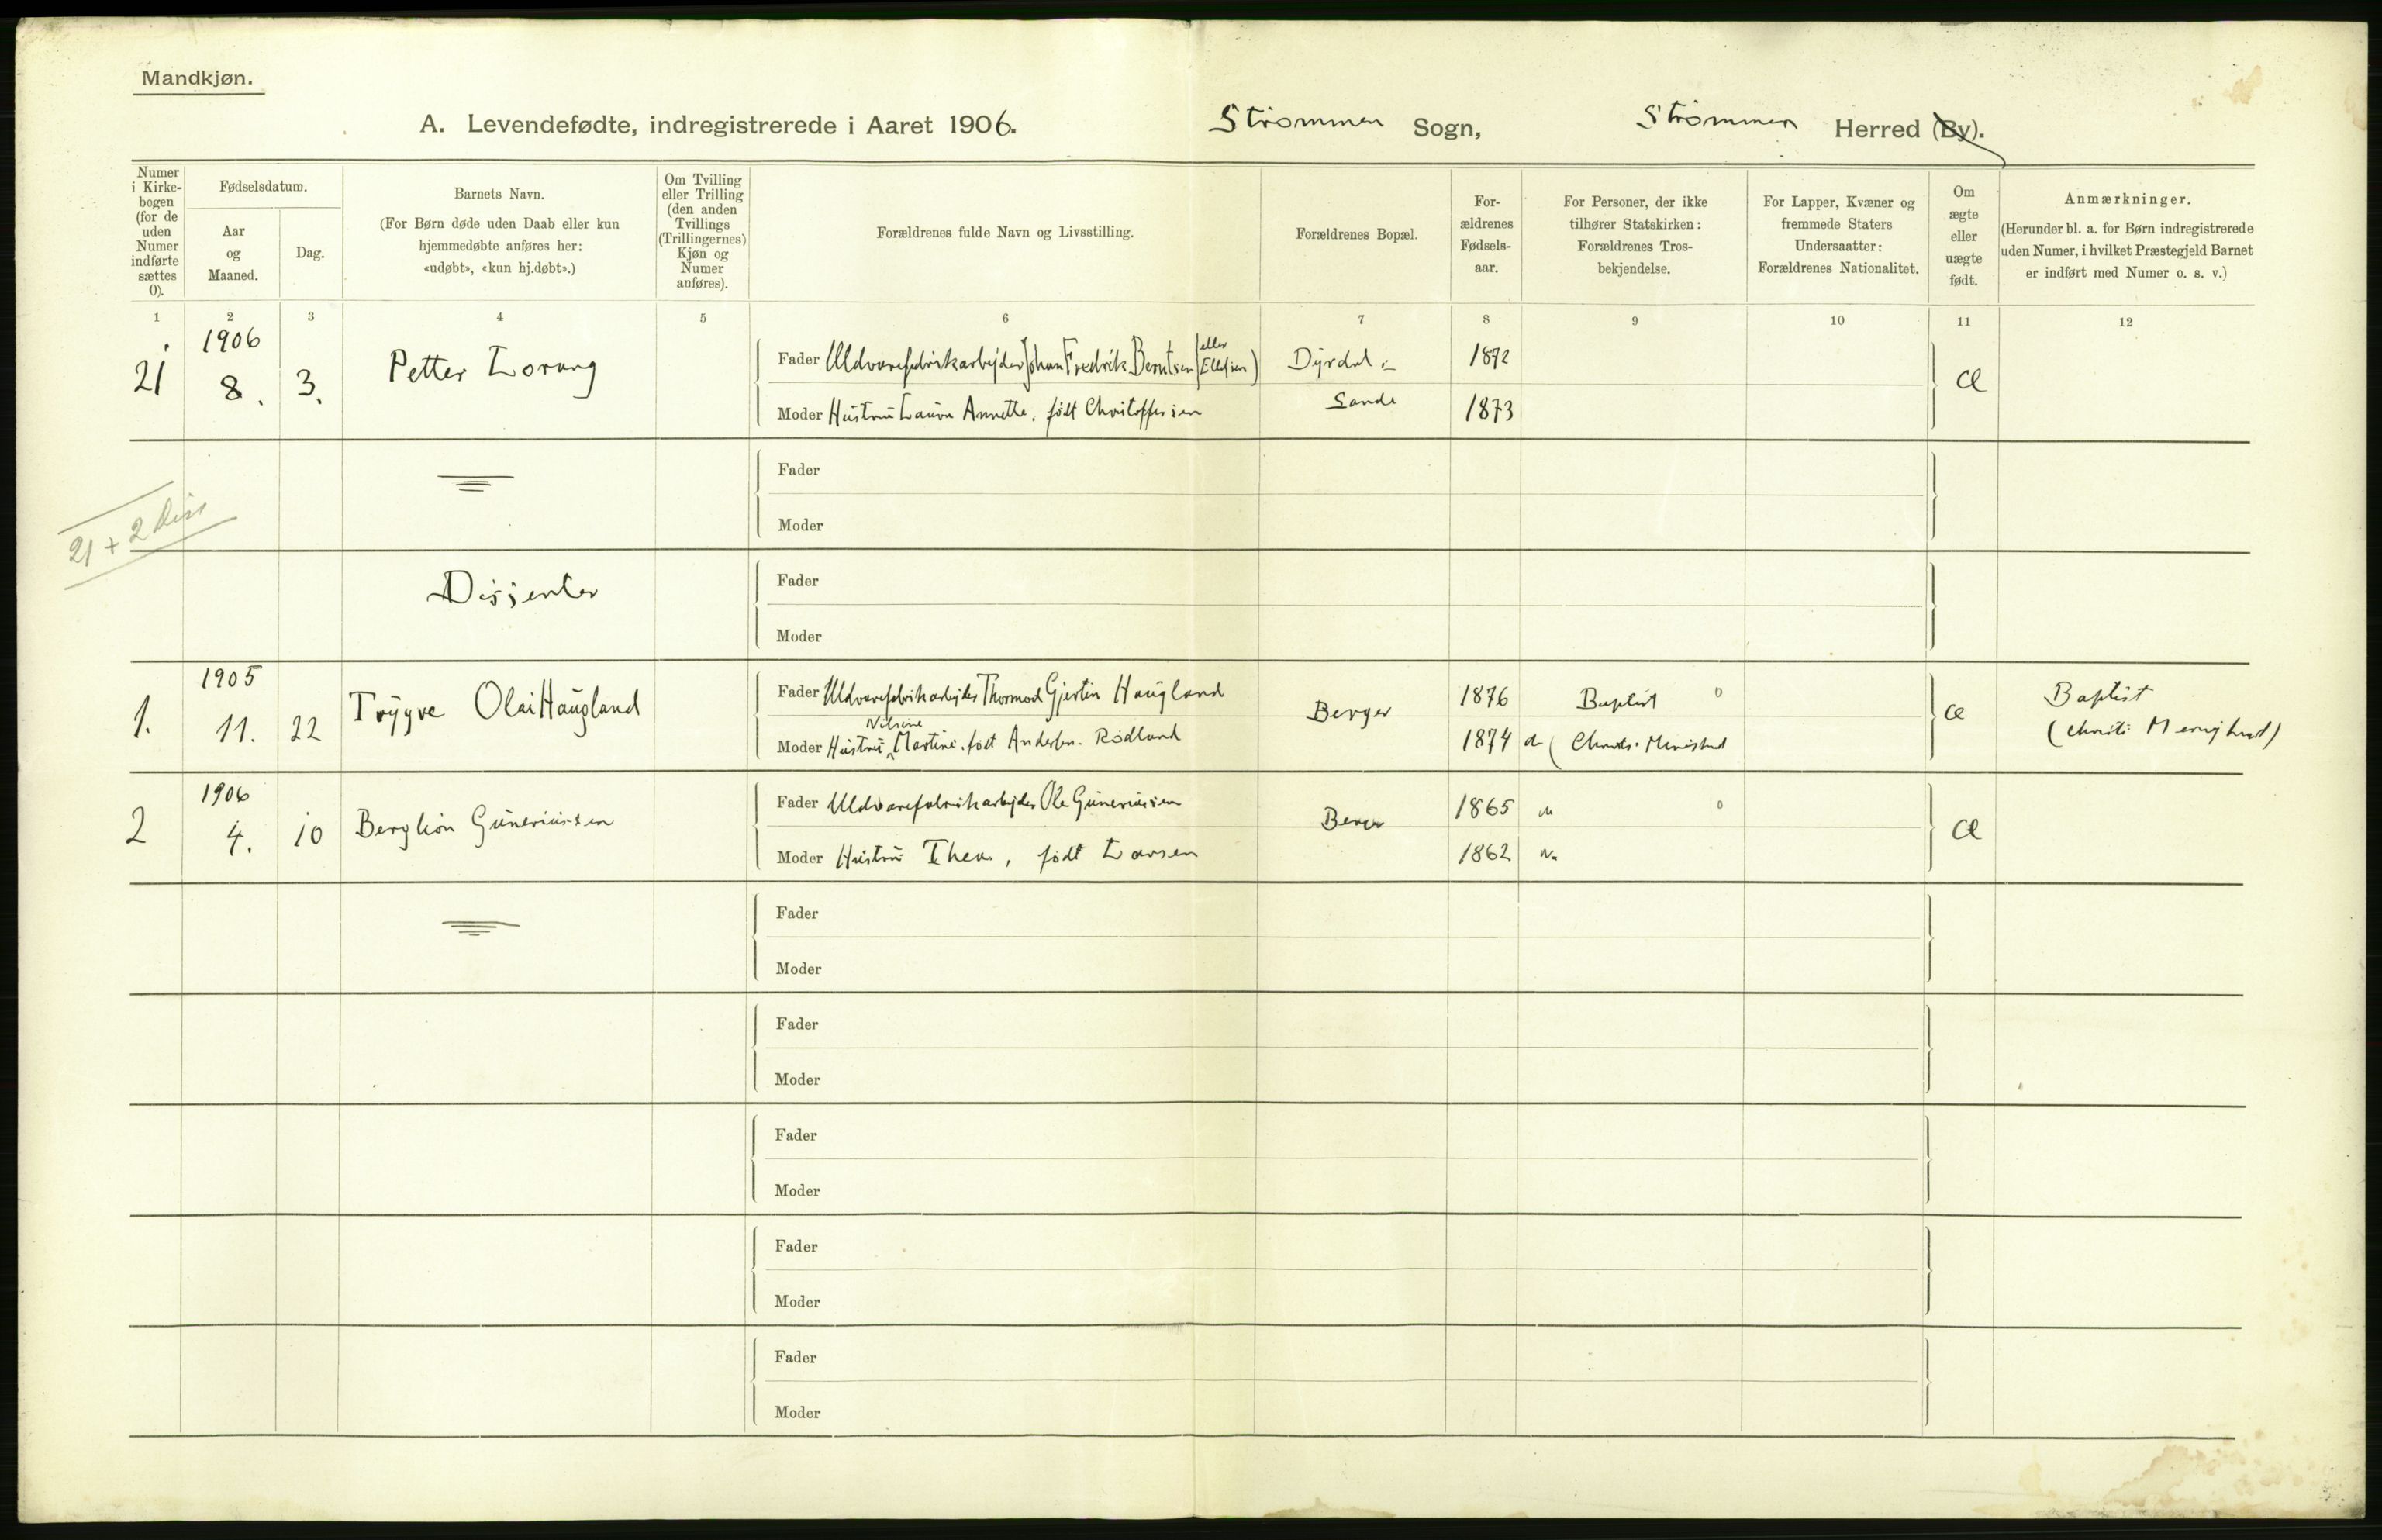 Mandkjøn.
A. Levendefødte, indregistrerede i Aaret 1906. Strømmen Sogn, Strømmen Herred (By).
Numer i Kirkebogen (for de uden Numer indførte sættes 0).
Fødselsdatum.
Aar og Maaned.
Dag.
Barnets Navn.
(For Børn døde uden Daab eller kun
hjemmedøbte anføres her:
«udøbt», «kun hj.døbt».)
Om Tvilling
eller Trilling
(den anden
Tvillings
(Trillingernes)
Kjøn og
Numer
anføres).
Forældrenes fulde Navn og Livsstilling.
Forældrenes Bopæl.
For-
ældrenes
Fødsels-
aar.
For Personer, der ikke
tilhører Statskirken:
Forældrenes Tros-
bekjendelse.
For Lapper, Kvæner og
fremmede Staters
Undersaatter:
Forældrenes Nationalitet.
Om
ægte
eller
uægte
født.
Anmærkninger.
(Herunder bl. a. for Børn indregistrerede
uden Numer, i hvilket Præstegjeld Barnet
er indført med Numer o. s. v.)
1 2 3 4 5 6 7 8 9 10 11 12
21 1906 8. 3. Petter Lorang
Fader Uldvarefabrikarbejder Johan Fredrik Berntsen (eller Ellefsen) Dyrdal i 1872 Æ
Moder Hustru Laura Annette. født Christoffersen Sande 1873
Fader
Moder
21 + 2 Diss
Dissenter
Fader
Moder
1. 1905 11. 22 Trygve Olai Haugland
Fader Uldvarefabrikarbejder Thormod Gjertin Haugland Berger 1876 Baptist 0 Æ Baptist
Moder Hustru Nilsine Martine. født Andersen. Rødland 1874
2 1906 4. 10 Bergliøn Guneriussen
Fader Uldvarefabrikarbejder Ole Guneriussen Berger 1865 0 Æ
Moder Hustru Thea, født Larsen 1862
Fader
Moder
Fader
Moder
Fader
Moder
Fader
Moder
Fader
Moder